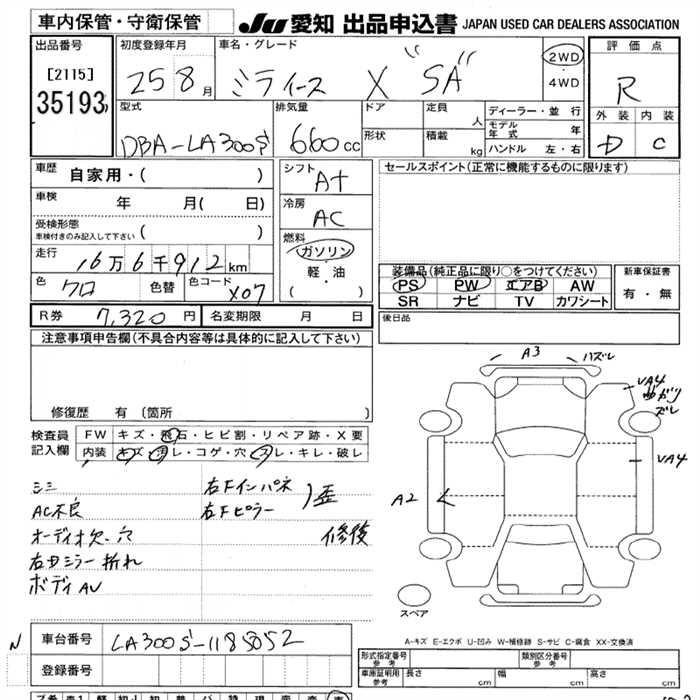 車内保管・守衛保管
JU 愛知 出品申込書 JAPAN USED CAR DEALERS ASSOCIATION
出品番号
[2115]
35193
初度登録年月
25 8 月
車名・グレード
ミライース X "SA"
2WD
・
4WD
評価点
R
外装 内装
D C
型式
DBA-LA300S
排気量
660 cc
ドア
形状
定員
人
積載
kg
ディーラー・並行
モデル年式 年
ハンドル 左・右
車歴
自家用・( )
車検
年 月( 日)
受検形態
車検付きのみ記入して下さい ( )
走行
16万6千912km
色
クロ
色替
色コード
X07
シフト
AT
冷房
AC
燃料
ガソリン
・
軽・油
( )
セールスポイント(正常に機能するものに限ります)
装備品(純正品に限り○をつけてください)
PS PW エアB AW
SR ナビ TV カワシート
新車保証書
有・無
R券 7,320 円
名変期限 月 日
後日品
注意事項申告欄(不具合内容等は具体的に記入して下さい)
修復歴 有(箇所 )
検査員
記入欄
FW キズ・飛石・ヒビ割・リペア跡・X要
内装 キズ・汚レ・コゲ・穴・スレ・キレ・破レ
シミ
AC不良
オーディオ欠.穴
右Dミラー折れ
ボディAU
右Fインパネ
右Fピラー
歪
修復
A3
ハズレ
UA4
マガリ
ズレ
UA4
A2
スペア
A-キズ E-エクボ U-凹み W-補修跡 S-サビ C-腐食 XX-交換済
N
車台番号
LA300S-1185052
登録番号
形式指定番号
参考
類別区分番号
参考
車庫証明用
参考
長さ cm
幅 cm
高さ cm